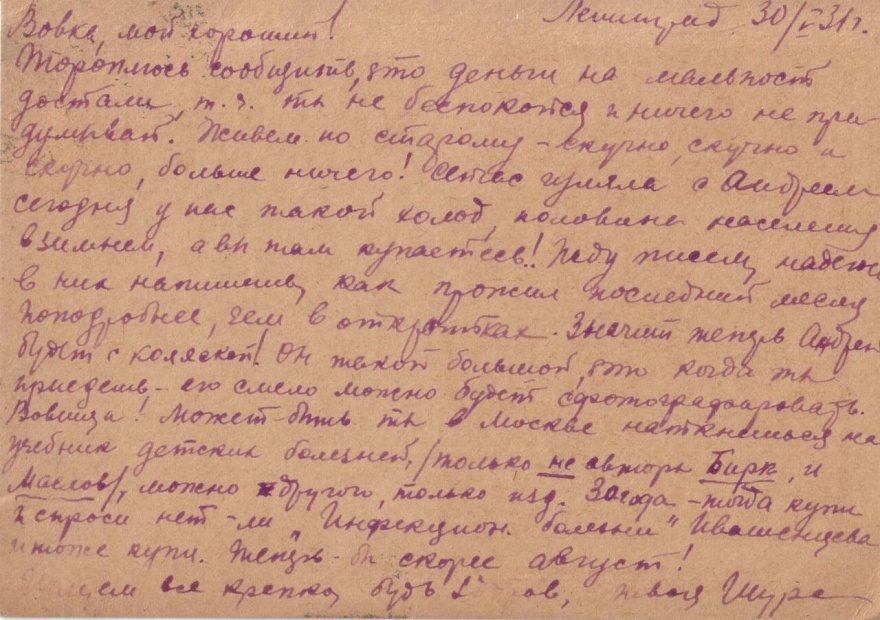 Ленинград 30/V 31г.
Вовка, мой хороший!
Тороплюсь сообщить, что деньги на
достали, т. ч. ты не беспокойся и ничего не при-
думывай. Живем по старому – скучно, скучно и
скучно, больше ничего! Сейчас гуляла с Андреем
сегодня у нас такой холод, половина населения
в зимнем, а вы там купаетесь! Жду писем, надеюсь
в них напишешь, как прожил последний месяц
поподробнее, чем в открытках. Значит теперь Андрей
будет с коляской! Он такой большой, что когда ты
приедешь – его смело можно будет сфотографировать.
Вовища! Может-быть ты в Москве наткнешься на
учебник детских болезней, /только не авторы Бирк, и
Маслов/, можно другого, только изд. – тогда купи
и спроси нет-ли „Инфекцион. болезни" Ивашенцева
и тоже купи. Теперь-бы скорее август!
все крепко, будь твоя Шура